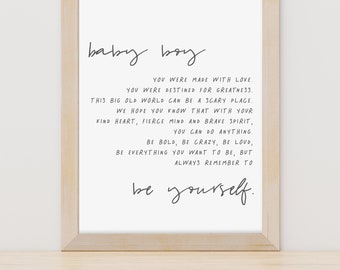 baby boy
YOU WERE MADE WITH LOVE.
YOU WERE DESTINED FOR GREATNESS.
THIS BIG OLD WORLD CAN BE A SCARY PLACE.
WE HOPE YOU KNOW THAT WITH YOUR
KIND HEART, FIERCE MIND AND BRAVE SPIRIT,
YOU CAN DO ANYTHING.
BE BOLD, BE CRAZY, BE LOUD,
BE EVERYTHING YOU WANT TO BE, BUT
ALWAYS REMEMBER TO
be yourself.